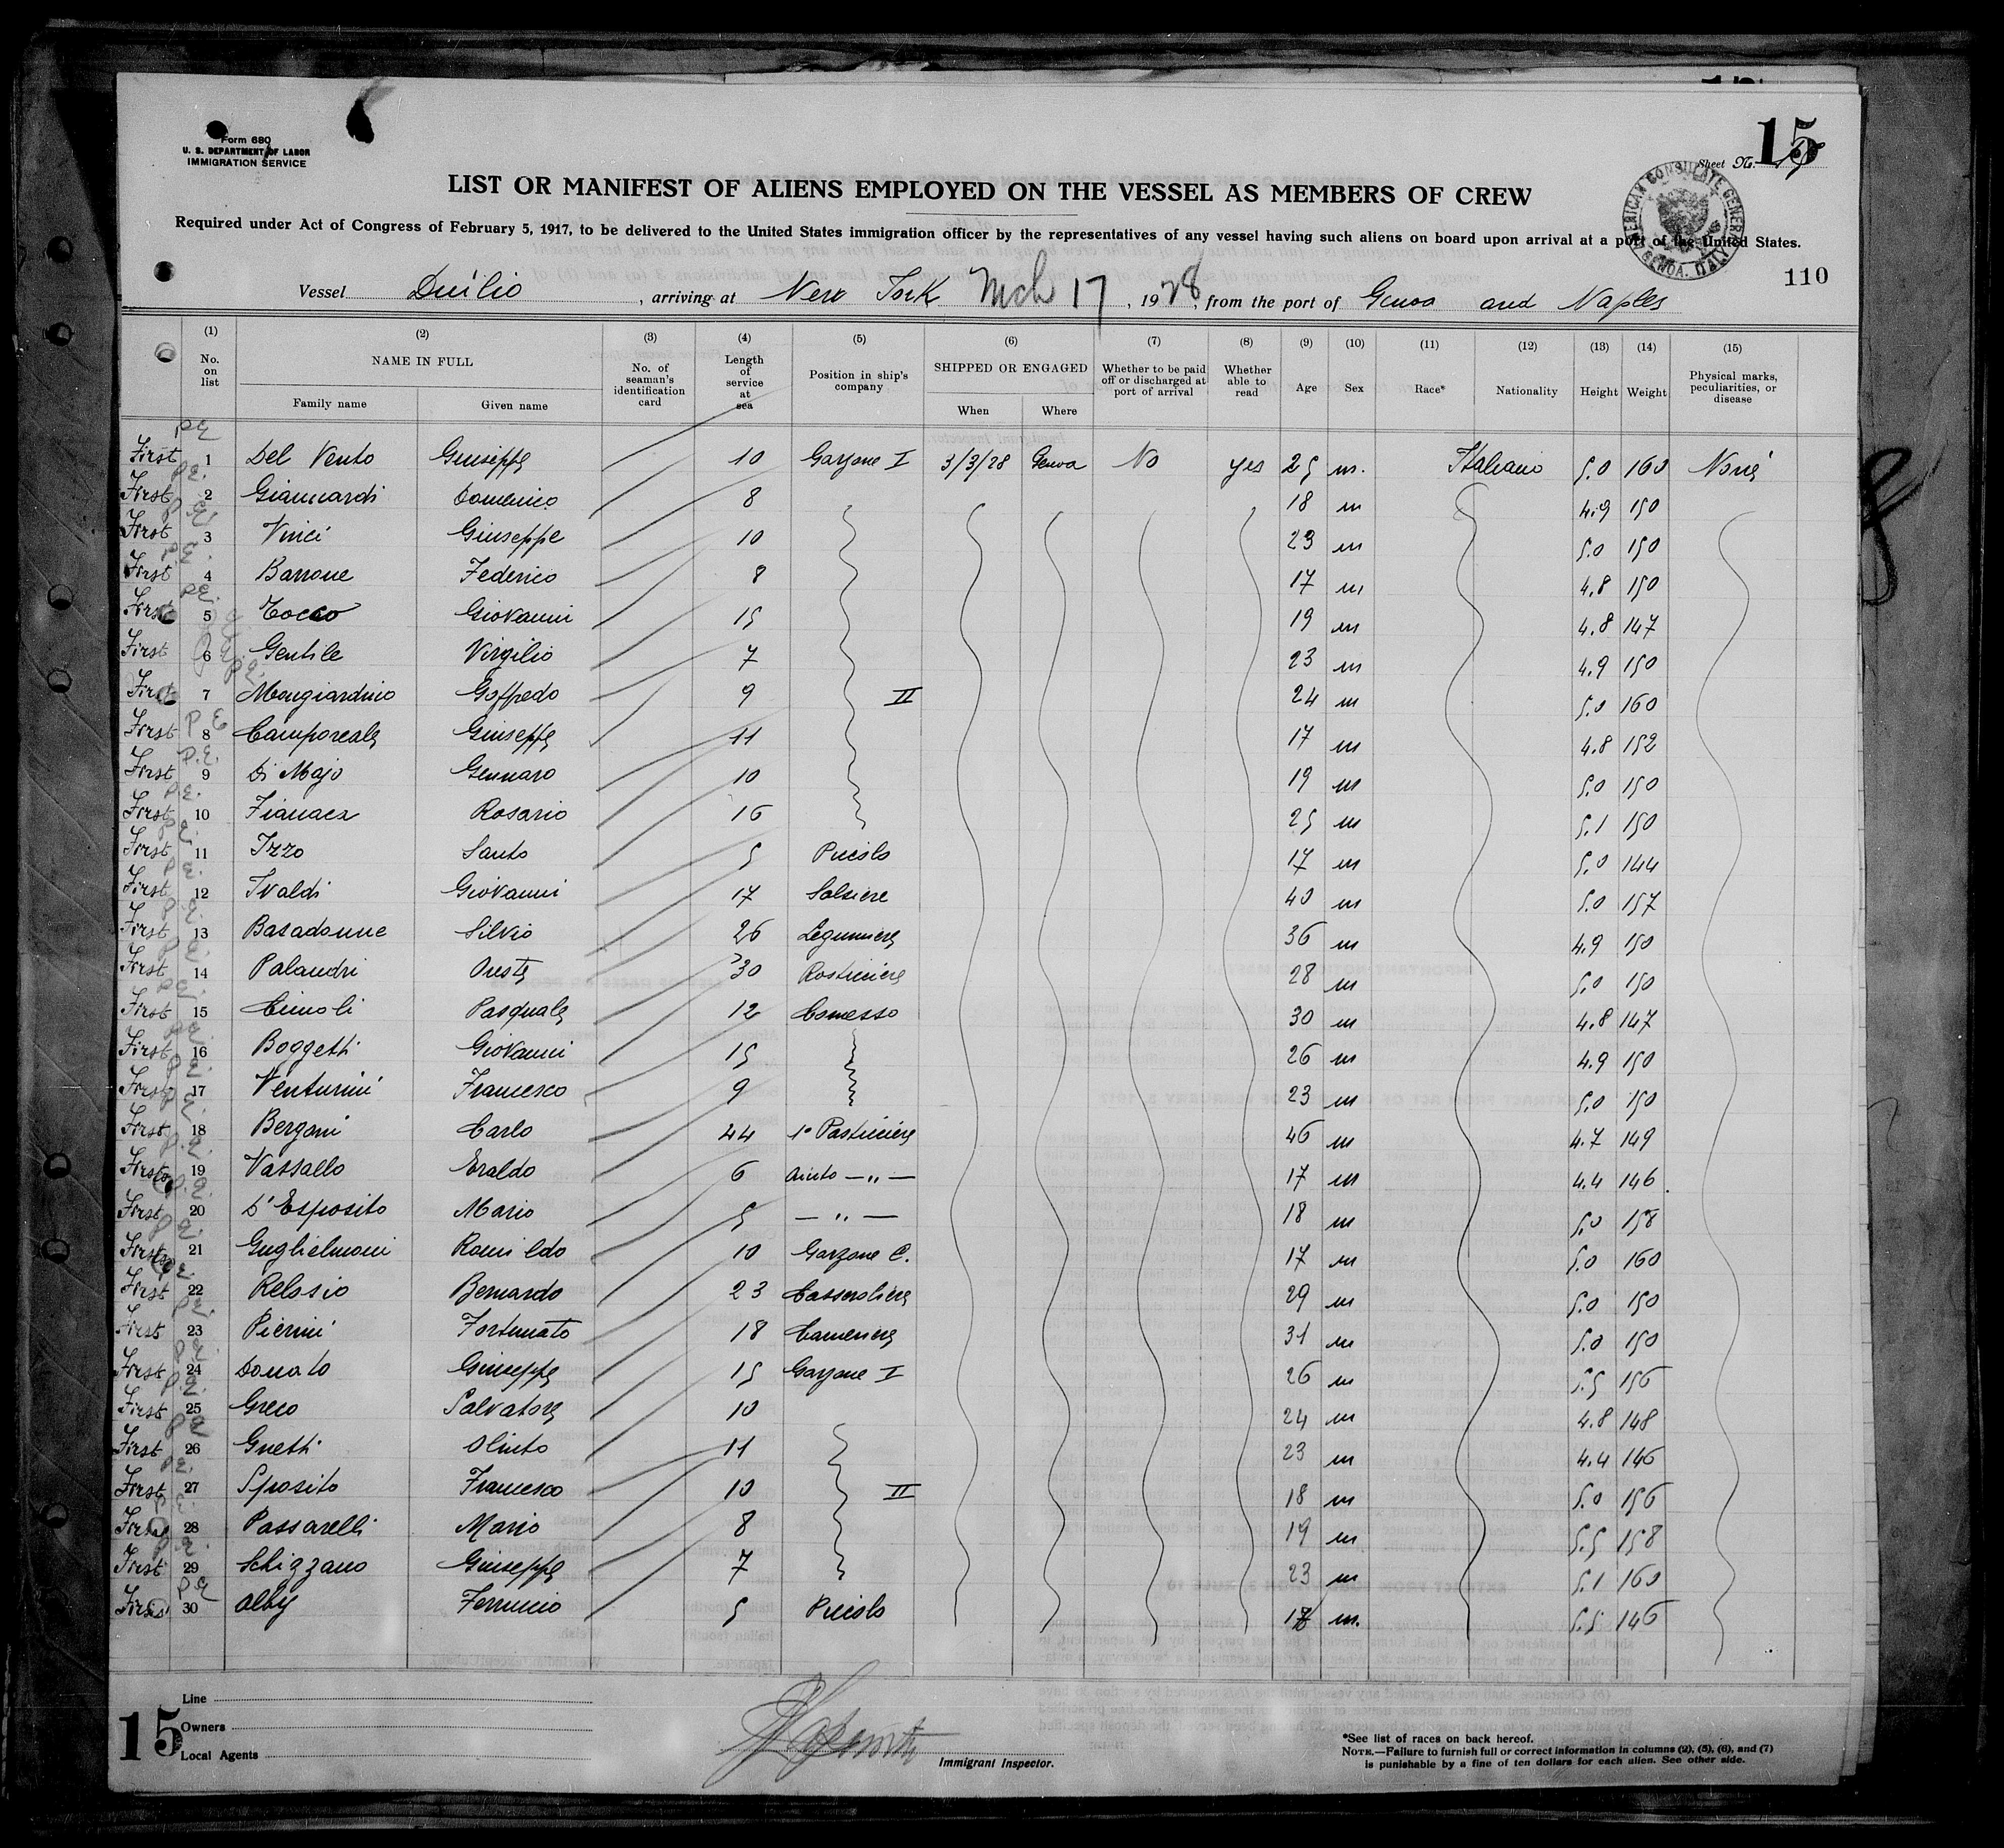 Form 680
U. S. DEPARTMENT OF LABOR
IMMIGRATION SERVICE
Sheet No. 15
LIST OR MANIFEST OF ALIENS EMPLOYED ON THE VESSEL AS MEMBERS OF CREW
Required under Act of Congress of February 5, 1917, to be delivered to the United States immigration officer by the representatives of any vessel having such aliens on board upon arrival at a port of the United States.
AMERICAN CONSULATE GENERAL GENOA, ITALY
110
Vessel Duilio, arriving at New York Mch 17, 1928, from the port of Genoa and Naples
(1) (2) (3) (4) (5) (6) (7) (8) (9) (10) (11) (12) (13) (14) (15)
No. on list NAME IN FULL Family name Given name No. of seaman's identification card Length of service at sea Position in ship's company SHIPPED OR ENGAGED When Where Whether to be paid off or discharged at port of arrival Whether able to read Age Sex Race* Nationality Height Weight Physical marks, peculiarities, or disease
First P.E. 1 Del Vento Giuseppe 10 Garzone I 3/3/28 Genoa No yes 25 m. Italiano 5.0 160 None
First P.E. 2 Giannardi Domenico 8 18 m 4.9 150
First P.E. 3 Vinci Giuseppe 10 23 m 5.0 150
First P.E. 4 Barrone Federico 8 17 m 4.8 150
First P.E. 5 Tocco Giovanni 15 19 m 4.8 147
First 6 Gentile Virgilio 7 23 m 4.9 150
First P.E. 7 Mongiardino Goffredo 9 II 24 m 5.0 160
First P.E. 8 Camporeale Giuseppe 11 17 m 4.8 152
First P.E. 9 Di Majo Gennaro 10 19 m 5.0 150
First P.E. 10 Fianaca Rosario 16 25 m 5.1 150
First P.E. 11 Izzo Santo 5 Piccolo 17 m 5.0 144
First P.E. 12 Ivaldi Giovanni 17 Salsiere 40 m 5.0 157
First P.E. 13 Basadonne Silvio 26 Legumiere 36 m 4.9 150
First P.E. 14 Palandri Oreste 30 Rosticciere 28 m 5.0 150
First P.E. 15 Cimoli Pasquale 12 Comesso 30 m 4.8 147
First P.E. 16 Boggetti Giovanni 15 26 m 4.9 150
First P.E. 17 Venturini Francesco 9 23 m 5.0 150
First P.E. 18 Bergoni Carlo 44 1° Pasticciere 46 m 4.7 149
First P.E. 19 Vassallo Eraldo 6 aiuto — " — 17 m 4.4 146
First P.E. 20 D'Esposito Mario 5 — " — 18 m 5.0 158
First P.E. 21 Guglielmoni Romildo 10 Garzone C. 17 m 5.0 160
First P.E. 22 Relosio Bernardo 23 Casseroliere 29 m 5.0 150
First P.E. 23 Pierini Fortunato 18 Cameriere 31 m 5.0 150
First P.E. 24 Donato Giuseppe 15 Garzone I 26 m 5.5 156
First P.E. 25 Greco Salvatore 10 24 m 4.8 148
First P.E. 26 Guetti Olinto 11 23 m 4.4 146
First P.E. 27 Sposito Francesco 10 II 18 m 5.0 156
First P.E. 28 Passarelli Mario 8 19 m 5.5 158
First P.E. 29 Schizzano Giuseppe 7 23 m 5.1 160
First P.E. 30 Alby Ferruccio 5 Piccolo m. 5.5 146
15
Line
Owners
Local Agents
Immigrant Inspector.
*See list of races on back hereof.
NOTE.—Failure to furnish full or correct information in columns (2), (5), (6), and (7)
is punishable by a fine of ten dollars for each alien. See other side.